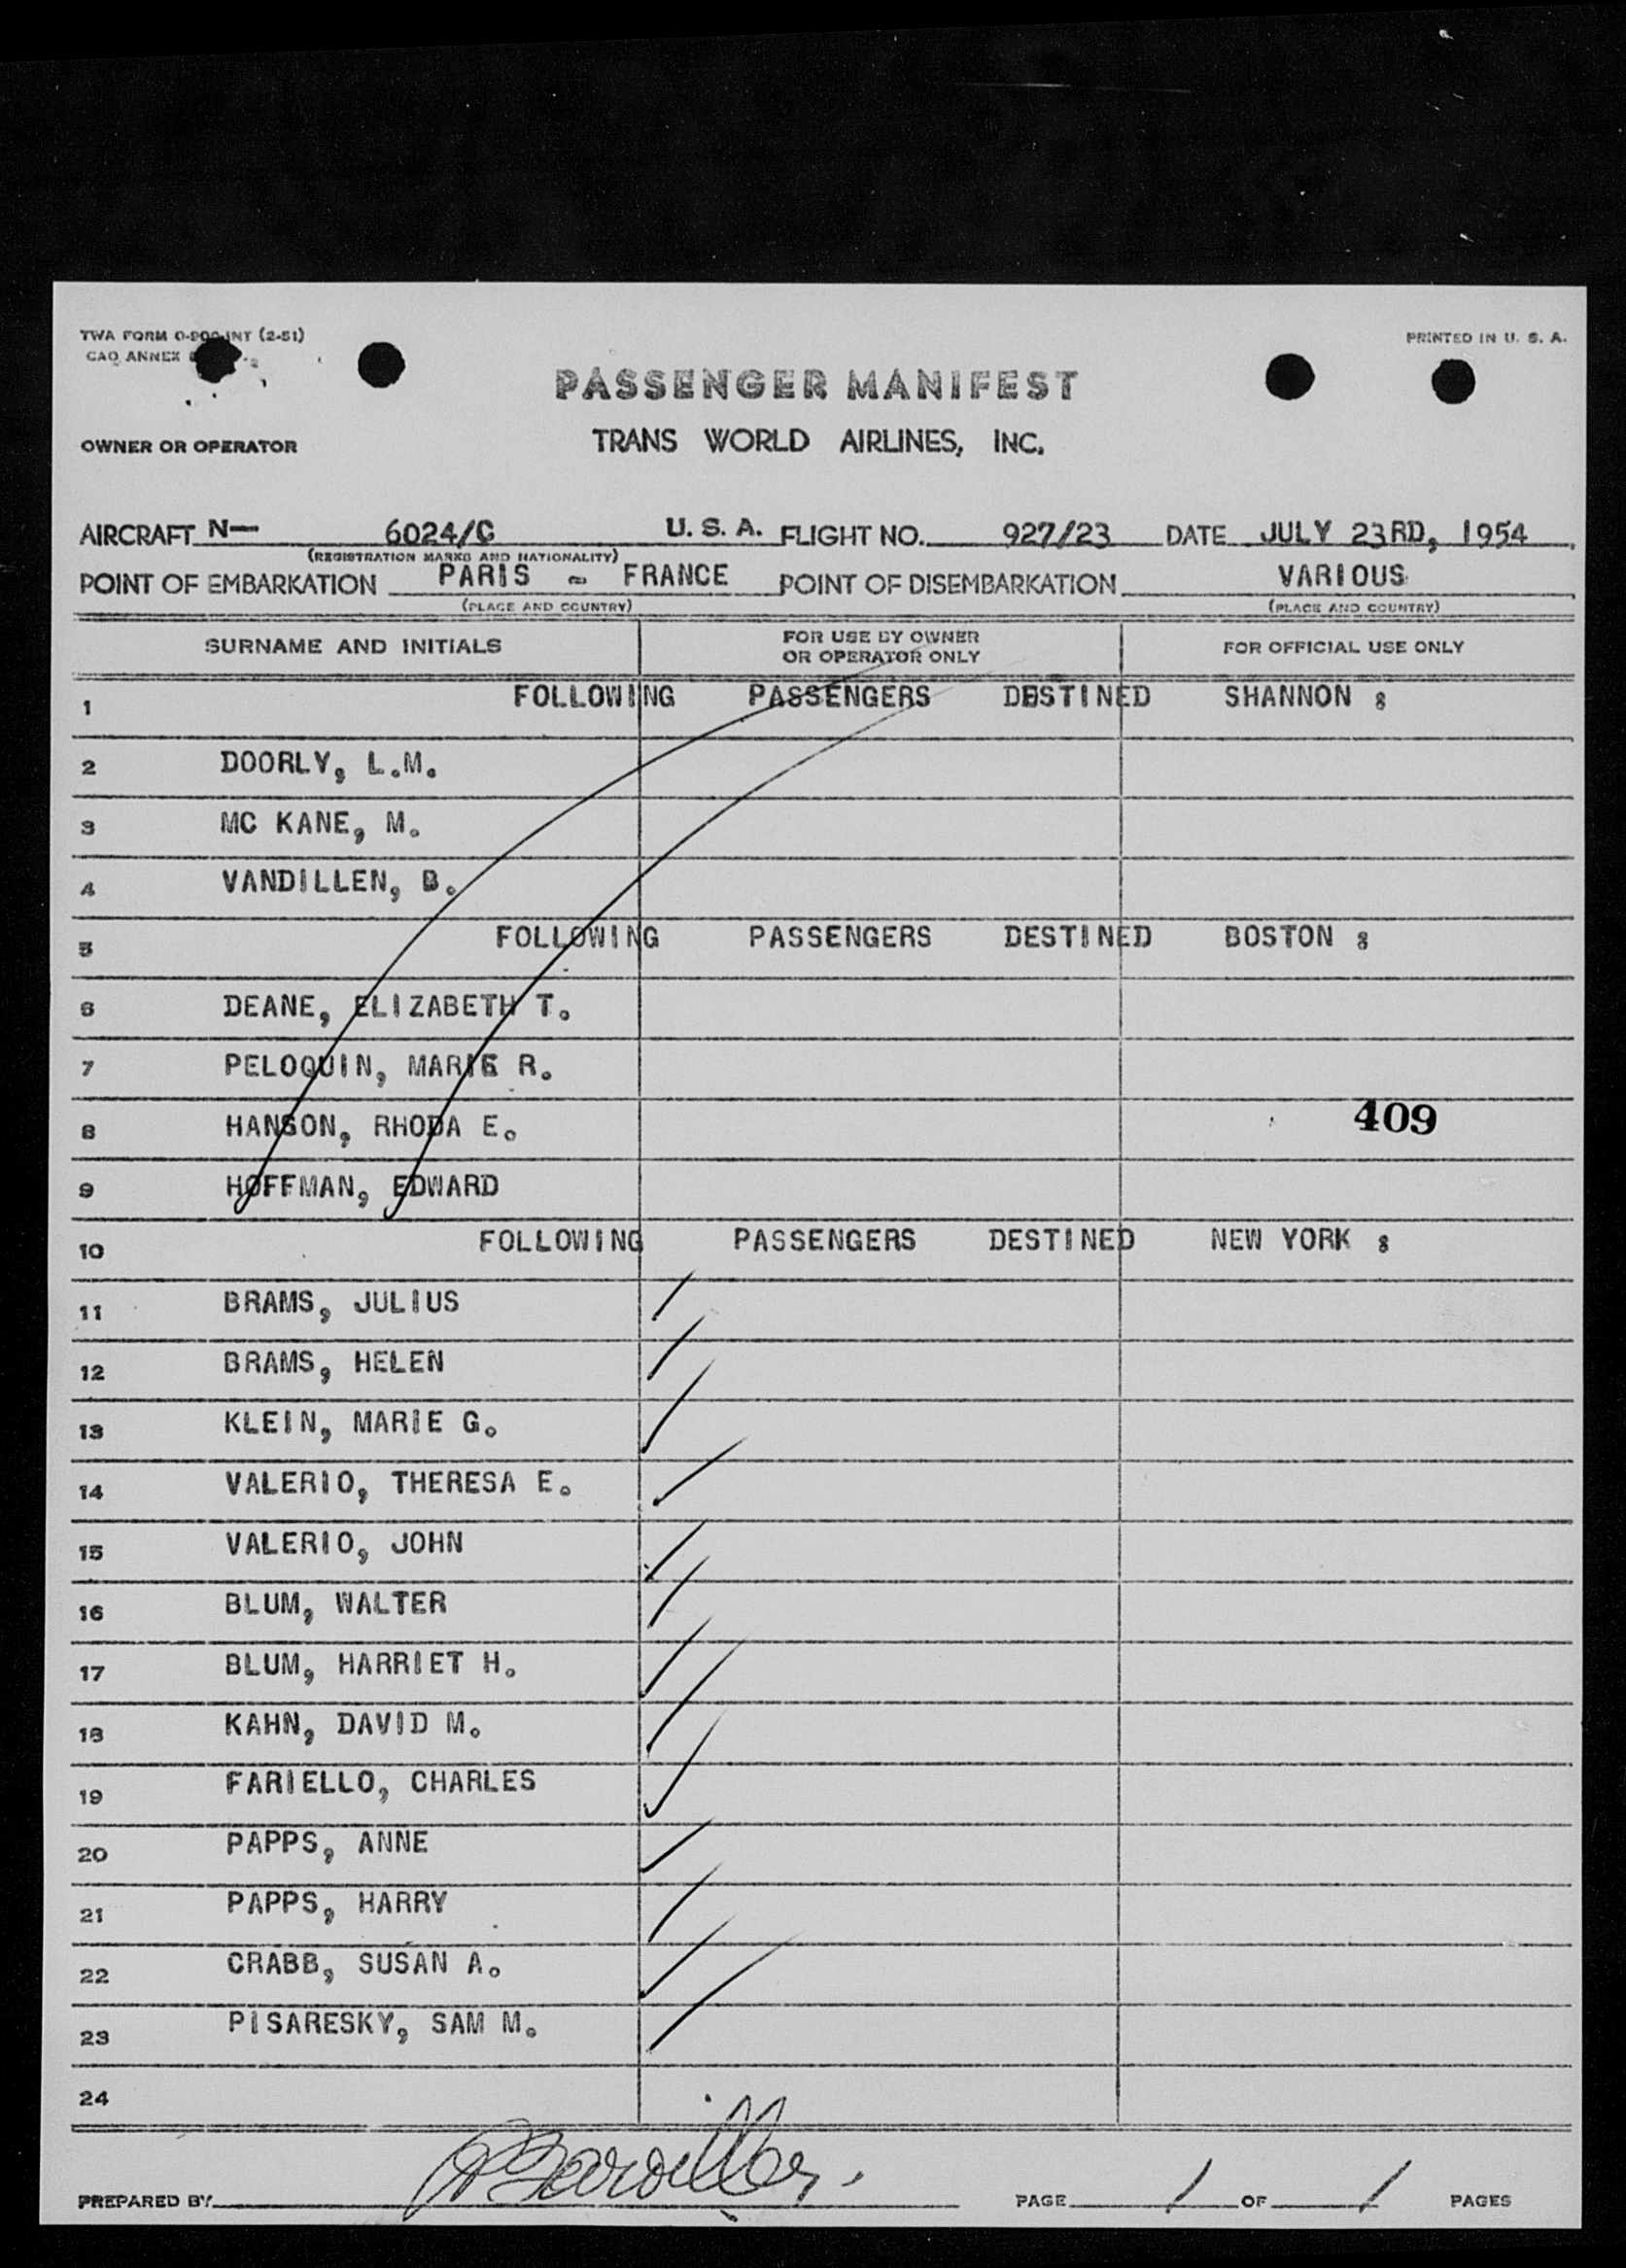 TWA FORM O-900-INT (2-51)
PRINTED IN U. S. A.
CAO ANNEX
PASSENGER MANIFEST
OWNER OR OPERATOR
TRANS WORLD AIRLINES, INC.
AIRCRAFT N— 6024/C U. S. A. FLIGHT NO. 927/23 DATE JULY 23RD, 1954
(REGISTRATION MARKS AND NATIONALITY)
POINT OF EMBARKATION PARIS - FRANCE POINT OF DISEMBARKATION VARIOUS
(PLACE AND COUNTRY) (PLACE AND COUNTRY)
SURNAME AND INITIALS FOR USE BY OWNER OR OPERATOR ONLY FOR OFFICIAL USE ONLY
1 FOLLOWING PASSENGERS DESTINED SHANNON :
2 DOORLY, L.M.
3 MC KANE, M.
4 VANDILLEN, B.
5 FOLLOWING PASSENGERS DESTINED BOSTON :
6 DEANE, ELIZABETH T.
7 PELOQUIN, MARIE R.
8 HANSON, RHODA E. 409
9 HOFFMAN, EDWARD
10 FOLLOWING PASSENGERS DESTINED NEW YORK :
11 BRAMS, JULIUS
12 BRAMS, HELEN
13 KLEIN, MARIE G.
14 VALERIO, THERESA E.
15 VALERIO, JOHN
16 BLUM, WALTER
17 BLUM, HARRIET H.
18 KAHN, DAVID M.
19 FARIELLO, CHARLES
20 PAPPS, ANNE
21 PAPPS, HARRY
22 CRABB, SUSAN A.
23 PISARESKY, SAM M.
24
PREPARED BY PAGE 1 OF 1 PAGES